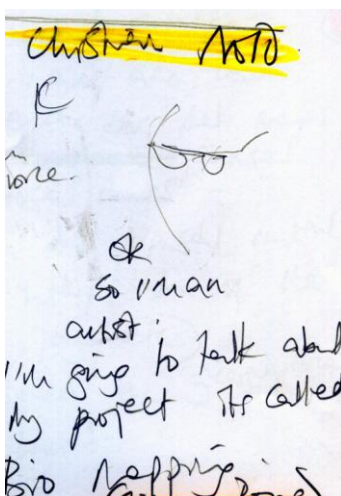 Christian Nold
ok
so I'm an
artist.
I'm going to talk about
my project its called
Bio Mapping